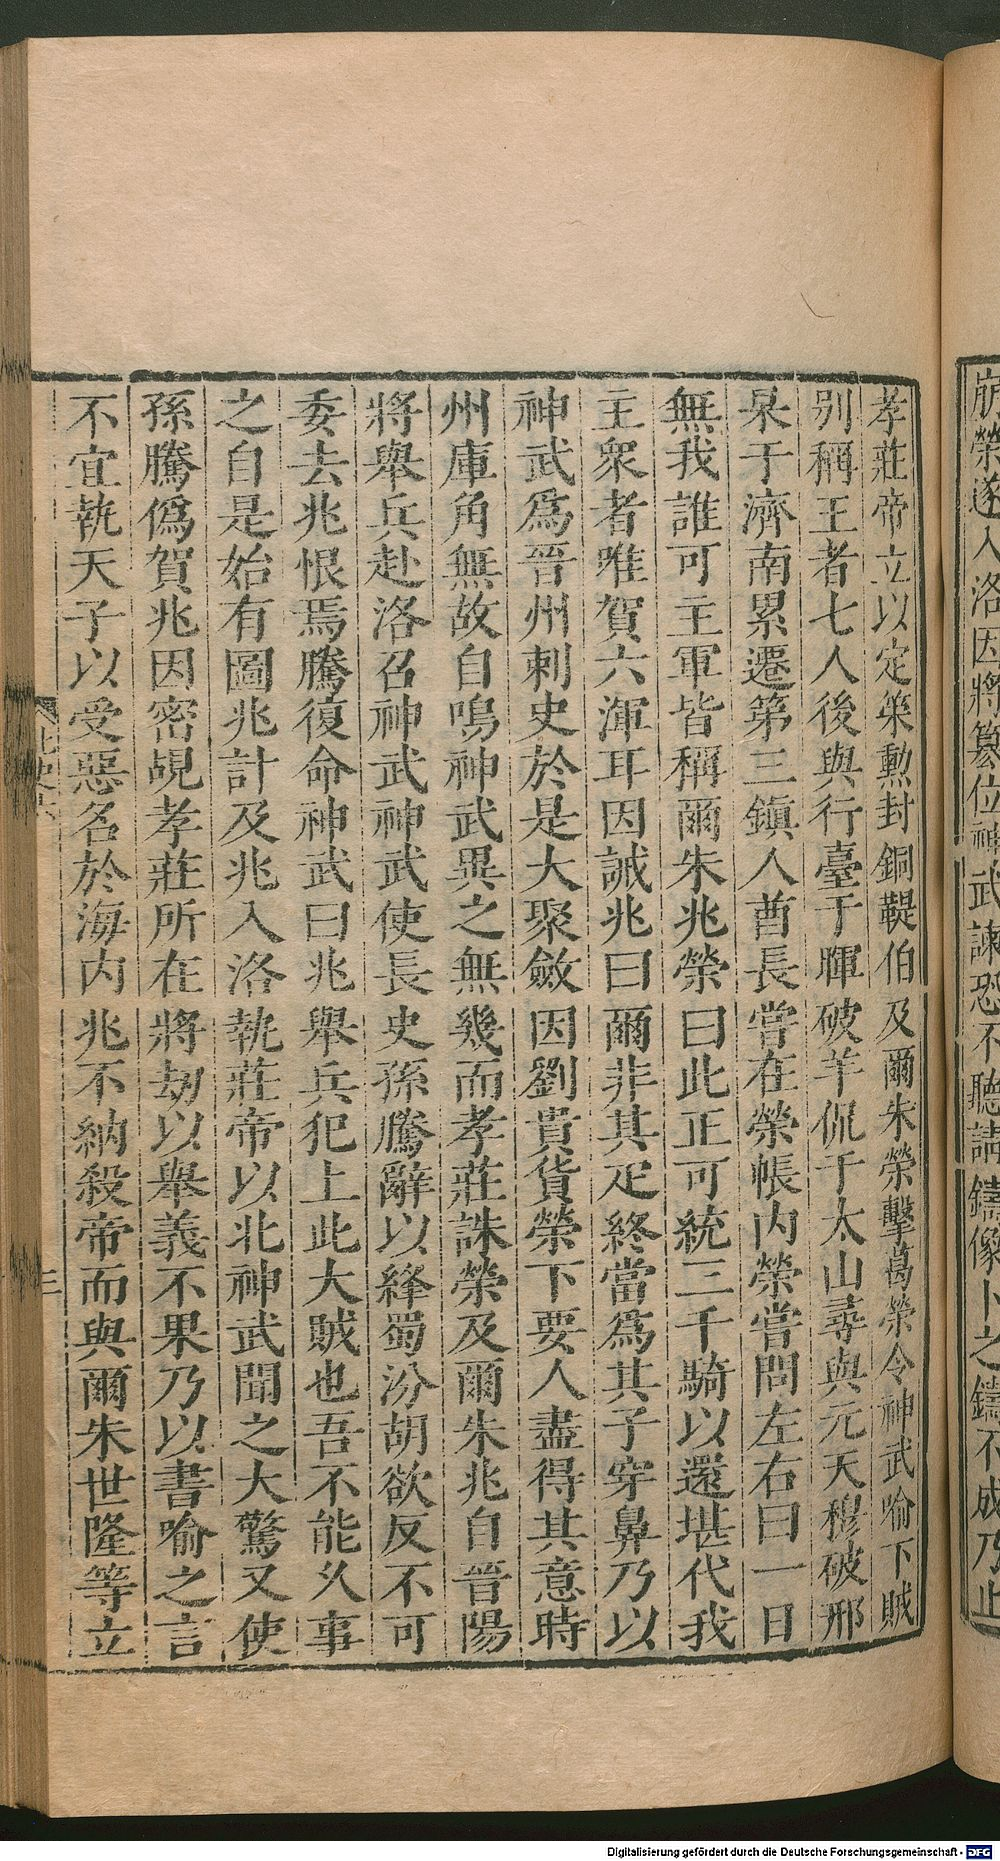 崩榮遂入洛因將簒位神武諫恐不聽請鑄像卜之鑄不成乃止
孝莊帝立以定策勲封銅鞮伯及爾朱榮擊葛榮令神武喻下賊
别稱王者七人後與行臺于暉破羊侃于太山尋與元天穆破邢
杲于濟南累遷第三鎮人酋長嘗在榮帳内榮嘗問左右曰一日
無我誰可主軍皆稱爾朱兆榮曰此正可統三千騎以還堪代我
主衆者唯賀六渾耳因誡兆曰爾非其疋終當爲其子穿鼻乃以
神武爲晉州刺史於是大聚斂因劉貴貨榮下要人盡得其意時
州庫角無故自鳴神武異之無幾而孝莊誅榮及爾朱兆自晉陽
將舉兵赴洛召神武神武使長史孫騰辭以絳蜀汾胡欲反不可
委去兆恨焉騰復命神武曰兆舉兵犯上此大賊也吾不能久事
之自是始有圖兆計及兆入洛執莊帝以北神武聞之大驚又使
孫騰僞賀兆因密覘孝莊所在將劫以舉義不果乃以書喻之言
不宜執天子以受惡名於海内兆不納殺帝而與爾朱世隆等立
北史六
三
Digitalisierung gefördert durch die Deutsche Forschungsgemeinschaft - DFG